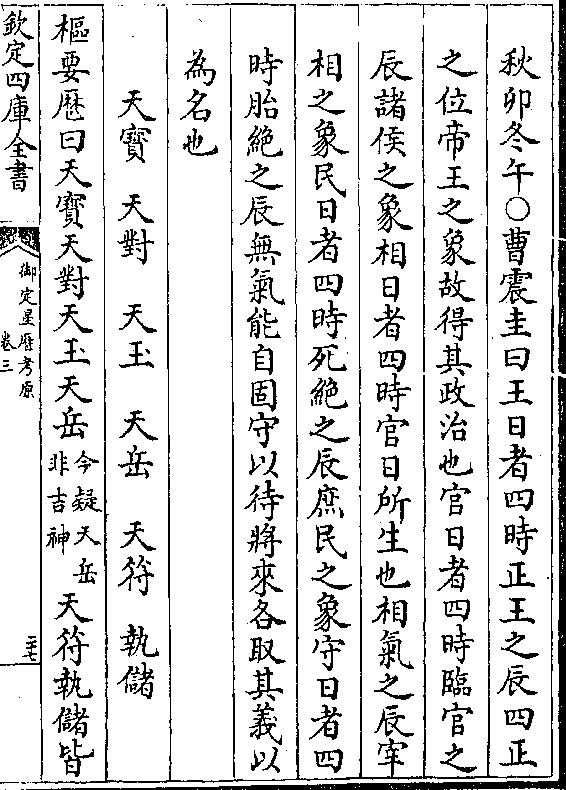 秋卯冬午○曹震圭曰王日者四時正王之辰四正
之位帝王之象故得其政治也官日者四時臨官之
辰諸侯之象相日者四時官日所生也相氣之辰宰
相之象民日者四時死絶之辰庶民之象守日者四
時胎絶之辰無氣能自固守以待將來各取其義以
為名也
天寶　天對　天玉　天岳　天符　執儲
樞要歴曰天寶天對天玉天岳今疑天岳非吉神天符執儲皆
欽定四庫全書
御定星歴考原
卷三
二十七